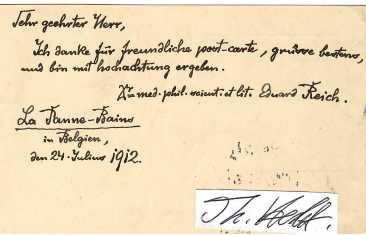 Sehr geehrter Herr,
Ich danke für freundliche post-carte, grüsse bestens,
und bin mit hochachtung ergeben.
Dr. med. phil. scient. et lit. Eduard Reich.
La Panne-Bains
in Belgien,
den 24. Julius 1912.
Th.